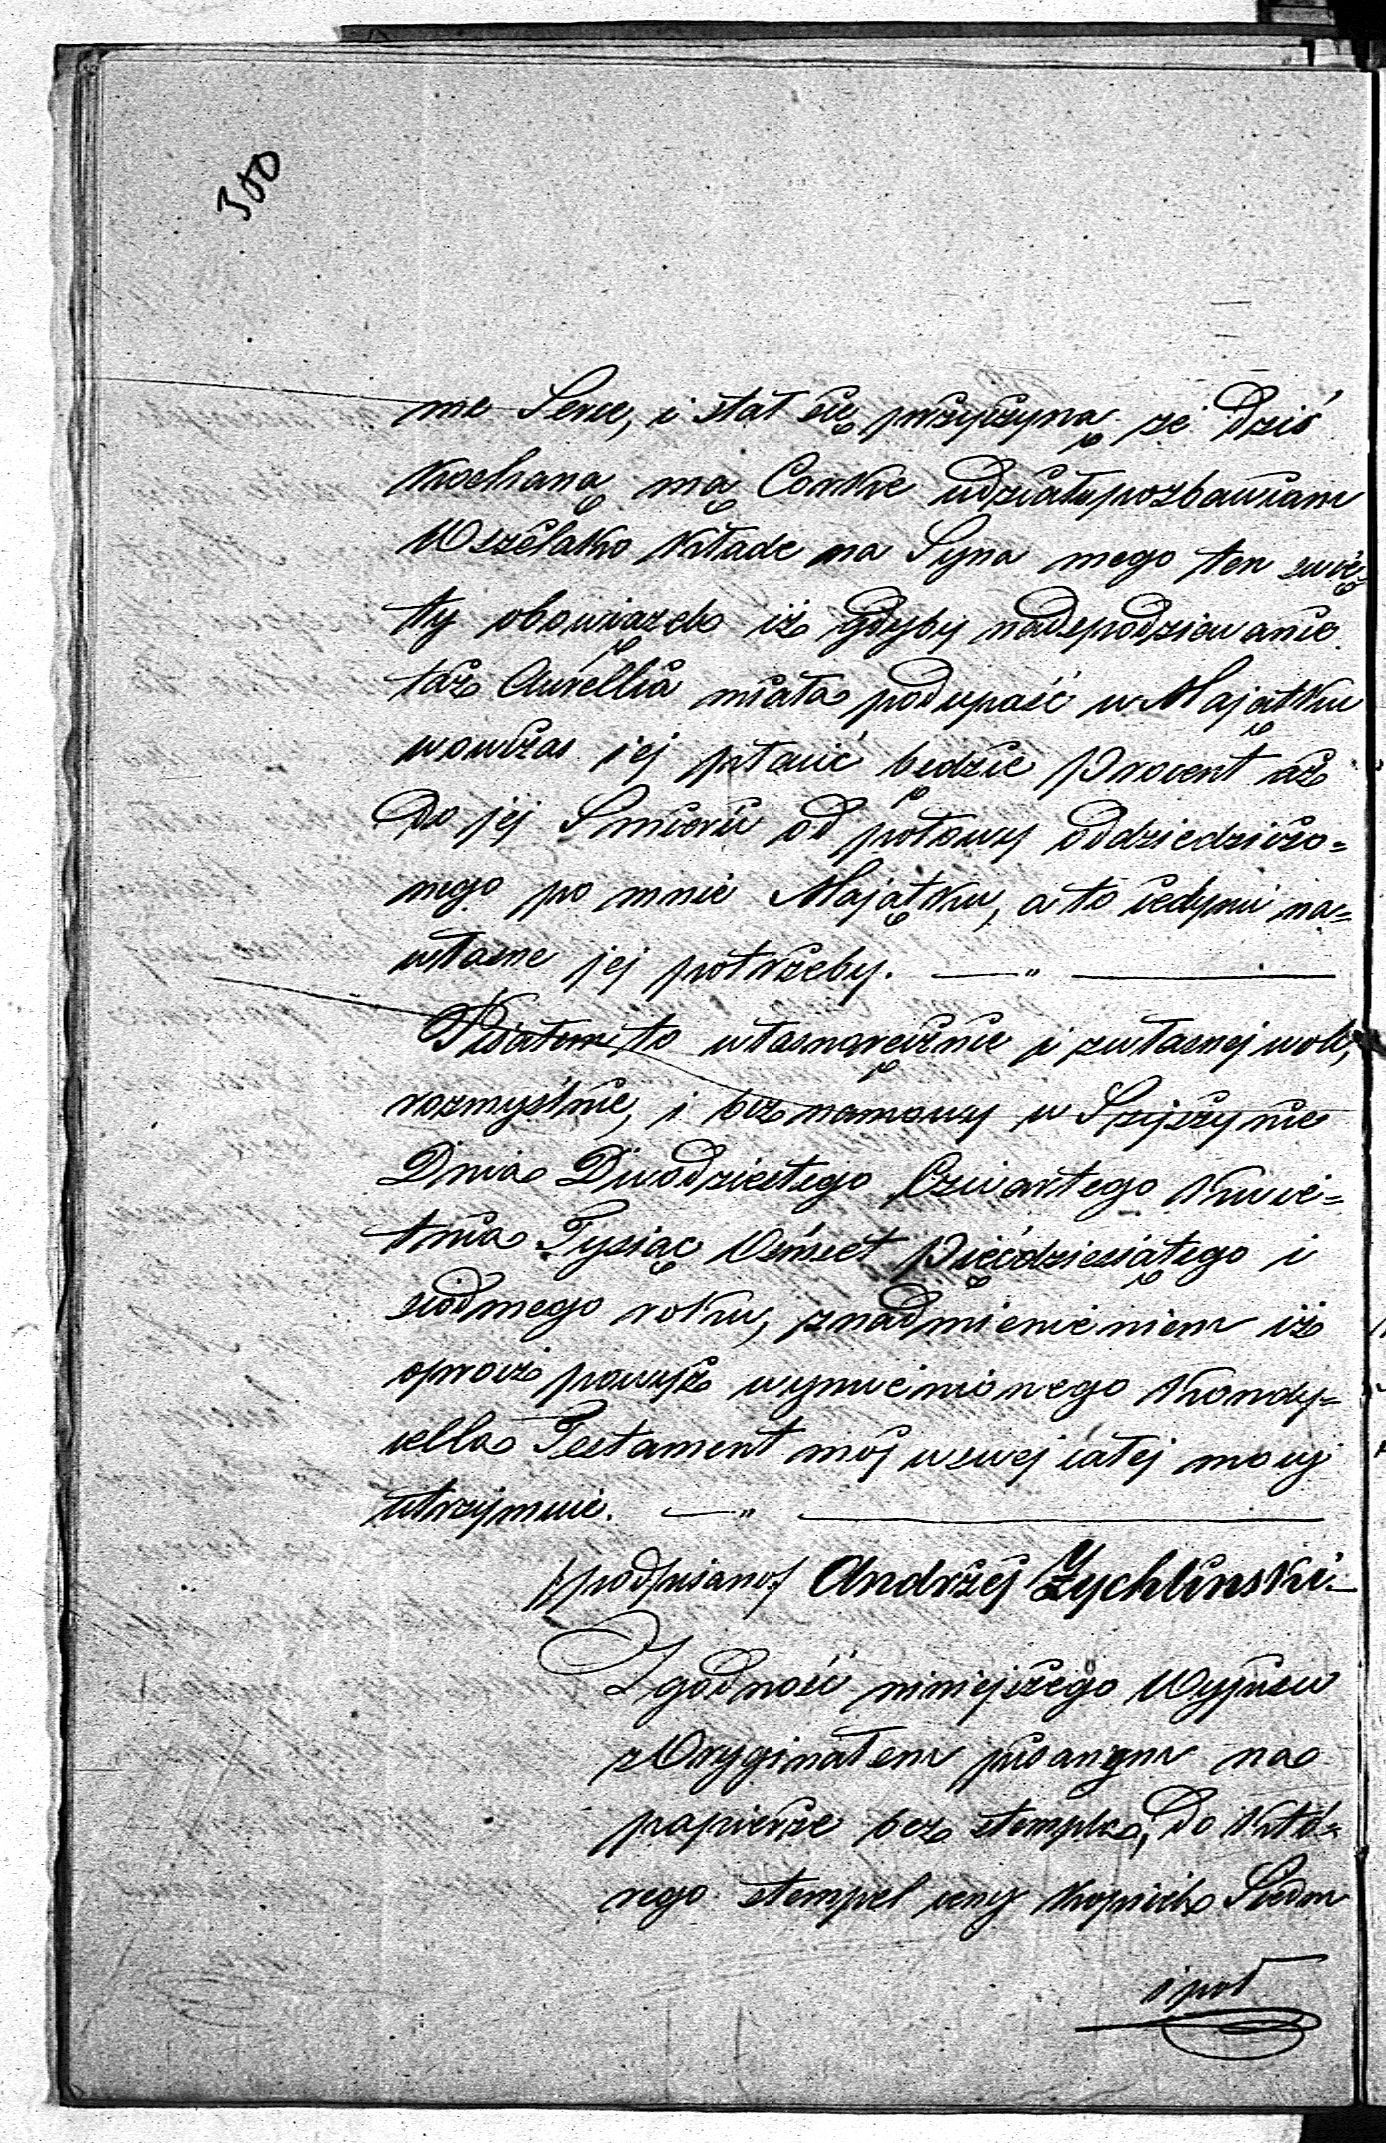 300
me Serce, i stał się przyczyną że dziś
kochaną mą Corkie udziału pozbawiam
Wszelako kładę na Syna mego ten świę-
ty obowiązek iż gdyby nadspodziewanie
taż Aurellia miała podupaść w Majątku
wowczas jej płacić będzie procent aż
do jej Smierci od połowy oddziedziczo=
nego po mnie Majątku, a to jedynie na=
własne jej potrzeby. — „ —
Pisałem to własnoręcznie i z własnej woli,
rozmyślnie, i bez namowy w Szyszynie
Dnia Dwódziestego Czwartego Kwie=
tnia Tysiąc Ośmset Pięćdziesiątego i
siodmego roku, z nadmienieniem iż
oprocz powyż wymienionego Kondy=
cella Testament mój w swej całej mocy
utrzymuie. — „ —
/podpisano/ Andrzej Zychlinski.—
Zgodność niniejszego Wypisu
z Oryginałem pisanym na
papierze bez stempla, do któ=
rego stempel ceny kopiiek Siedm
i poł